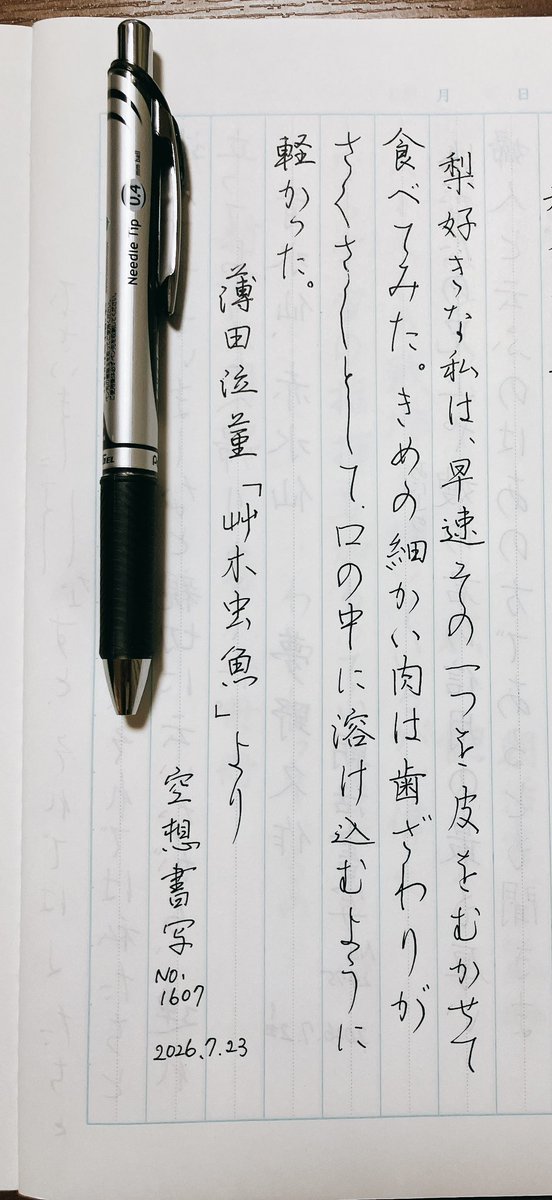 月　日
梨好きな私は、早速その一つを皮をむかせて
食べてみた。きめの細かい肉は歯ざわりが
さくさくとして、口の中に溶け込むように
軽かった。
薄田泣菫「艸木虫魚」より
空想書写
NO.
1607
2026.7.23
Needle Tip 0.4